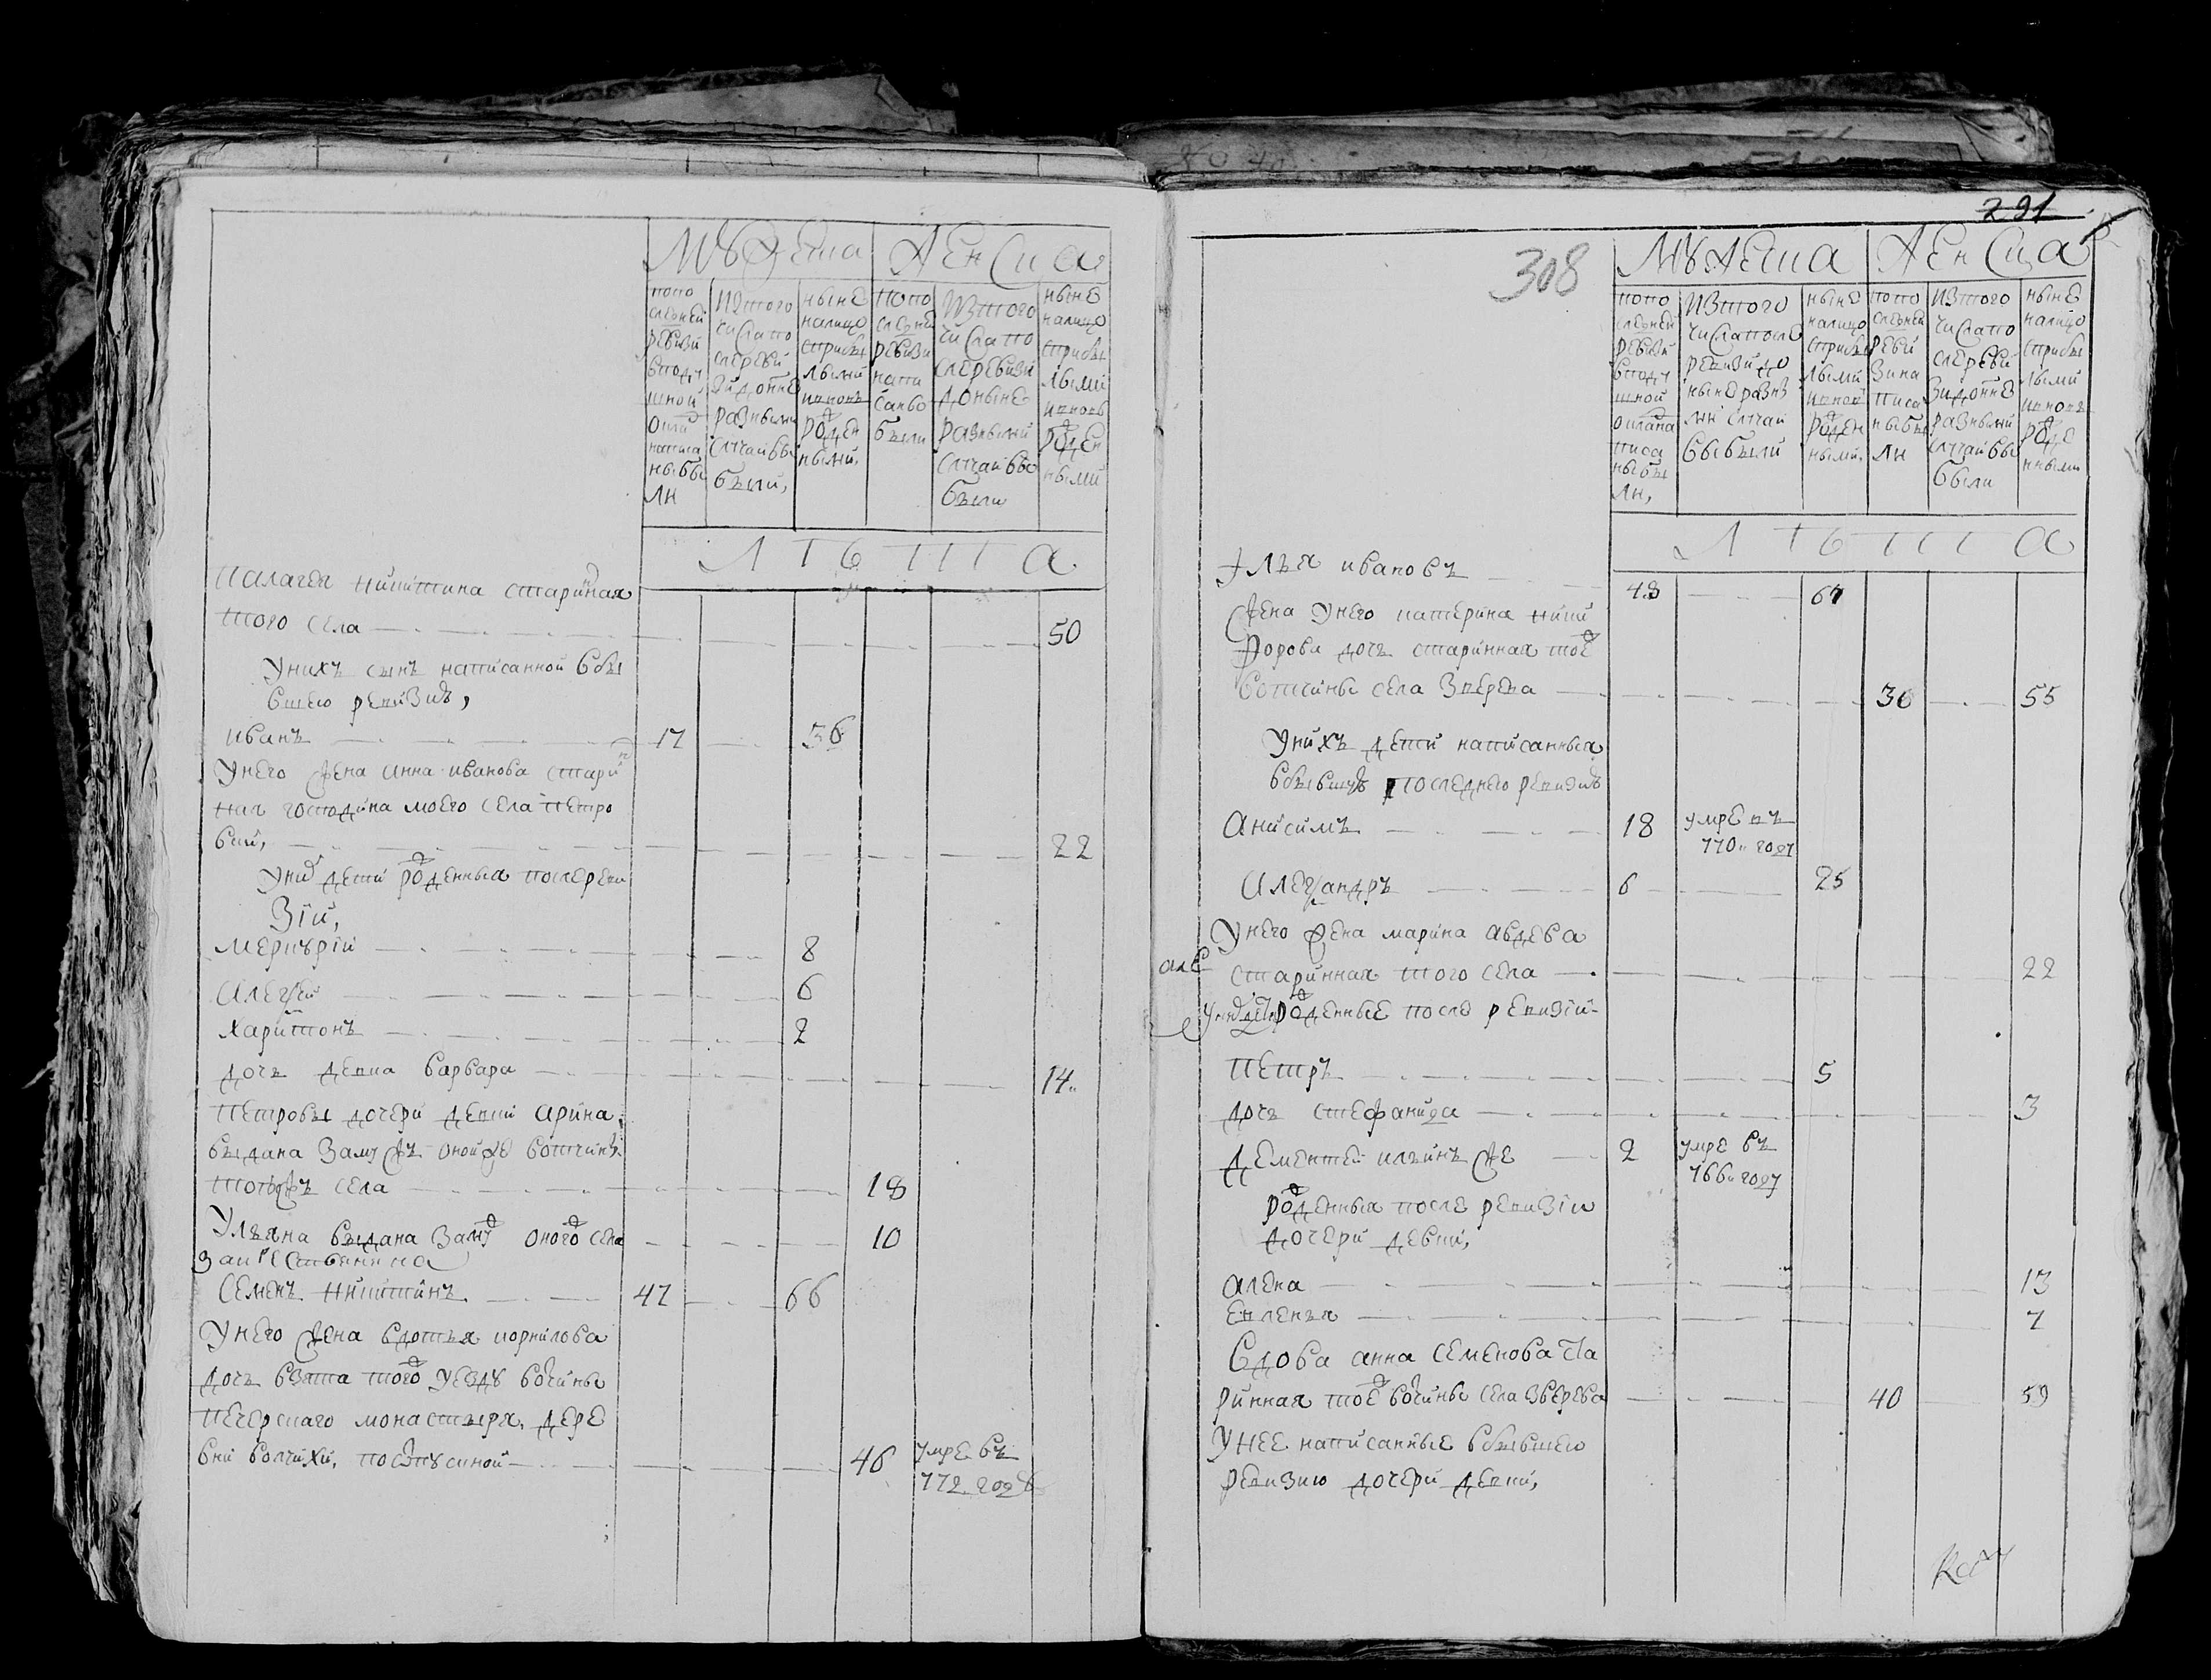 Мужеска Женска
попо следней ревизи вподу шной оклад написа ныбы ли
Изтого числапо следней ревизи донне разными случаи вы были,
ныне налицо сприбы лыми ивновь рожден ными,
попо следней ревизи напи саны были
Изтого числа по следревизи доныне разными случаи вы были
ныне налицо сприбы лыми ивновь рожден ными
Лѣта
Палагея никитина старинная
того села 50
Унихъ сынъ написанной вбы
вшею ревизию,
иванъ 17 36
Унего жена анна иванова стари
ная господина моего села петро
вки, 22
Уних дети рожденныя послереви
зіи,
меркурій 8
Алеѯей 6
харитонъ 2
дочь девка варвара 14
Петровы дочери девки арина
выдана замужъ оной же вотчины
тогожъ села 18
Ульяна выдана замуж оного села
за крестьянина 10
Семенъ никитинъ 47 66
Унего жена вдотья корнилова
дочь взята того уезду вотчины
печерскаго монастыря, дере
вни волчихи, поотпускной 46 умре въ
772 году
291
308
Мужеска Женска
попо следней ревизи вподу шной окладна писа ныбы ли,
Изтого числапосле ревизидо ныне разны ми случаи выбыли
ныне налицо сприбы лыми ивнов рожден ными,
попо следней реви зина писа ныбы ли
Изтого числапо следреви зидонне разными случаи вы были
ныне налицо сприбы лыми ивновь рожде нными
Лѣта
Илья ивановъ 43 61
Жена унего катерина ники
форова дочь старинная тоеж
вотчины села зверева 36 55
Унихъ дети написанныя
вбывшую последнею ревизию
Анисимъ 18 умре въ
770 году
Алеѯандръ 6 25
Унего жена марина авдева
старинная того села 22
уних дети рожденные после ревизіи
Петръ 5
дочь стефанида 3
Дементей ильинъ же 2 умре въ
766 году
рожденныя после ревизіи
дочери девки,
алена 13
евленья 7
Вдова анна семенова ста
ринная тоеж вотчины села зверева 40 59
Унее написанные вбывшею
ревизию дочери девки,